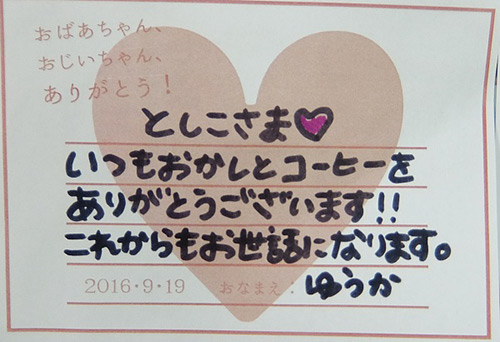 おばあちゃん、
おじいちゃん、
ありがとう！
としこさま♡
いつもおかしとコーヒーを
ありがとうございます!!
これからもお世話になります。
2016・9・19 おなまえ：ゆうか